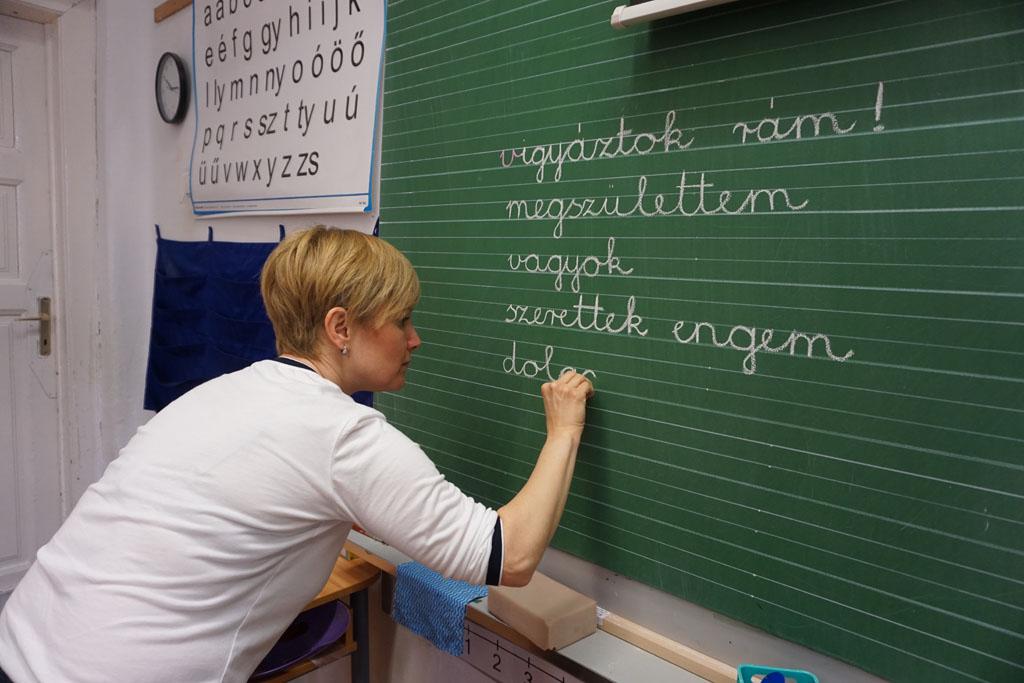 a á b c
e é f g gy h i í j k
l ly m n ny o ó ö ő
p q r s sz t ty u ú
ü ű v w x y z zs
vigyáztok rám!
megszülettem
vagyok
szerettek engem
1 2 3